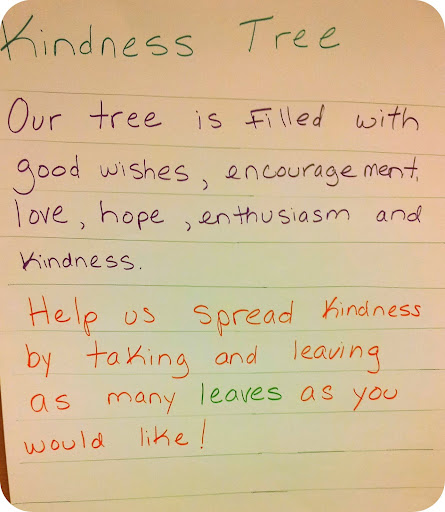 Kindness Tree
Our tree is filled with
good wishes, encouragement,
love, hope, enthusiasm and
kindness.
Help us spread kindness
by taking and leaving
as many leaves as you
would like!